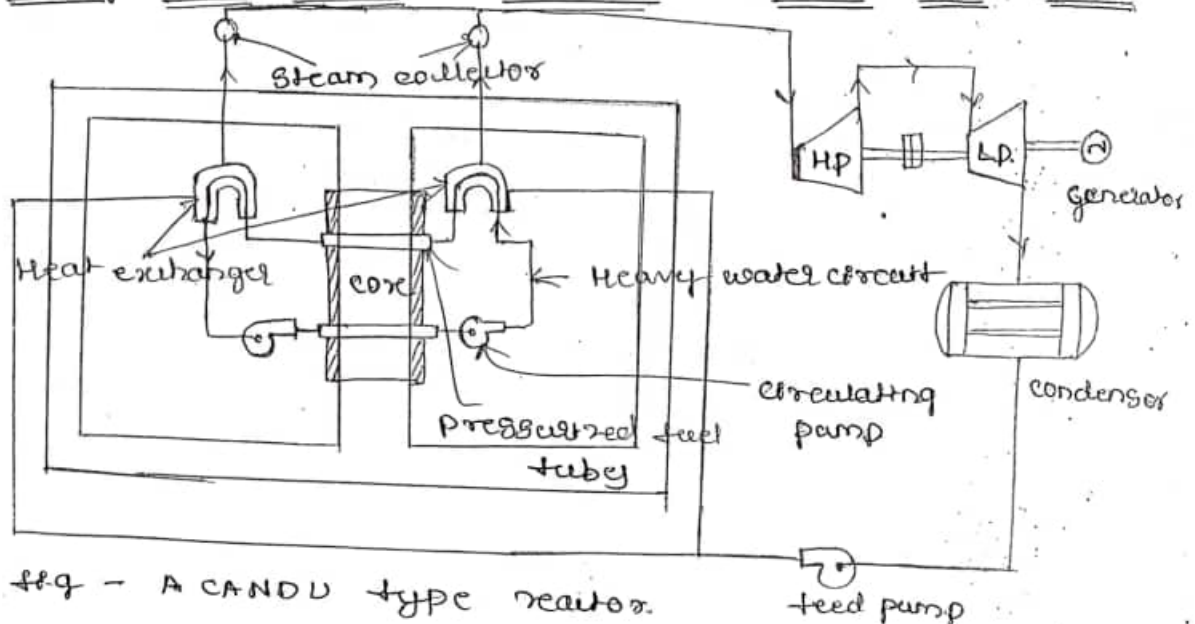 steam collector
HP
L.P.
Generator
Heat exchanger
core
Heavy water circuit
circulating
pump
condensor
pressurized fuel
tubes
fig - A CANDU type reactor.
feed pump